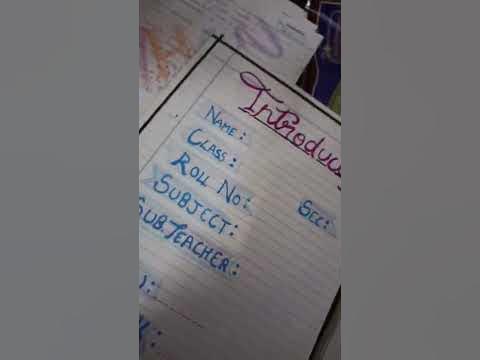 Introduc
NAME:
CLASS:
ROLL NO:
SEC:
SUBJECT:
SUB.TEACHER: